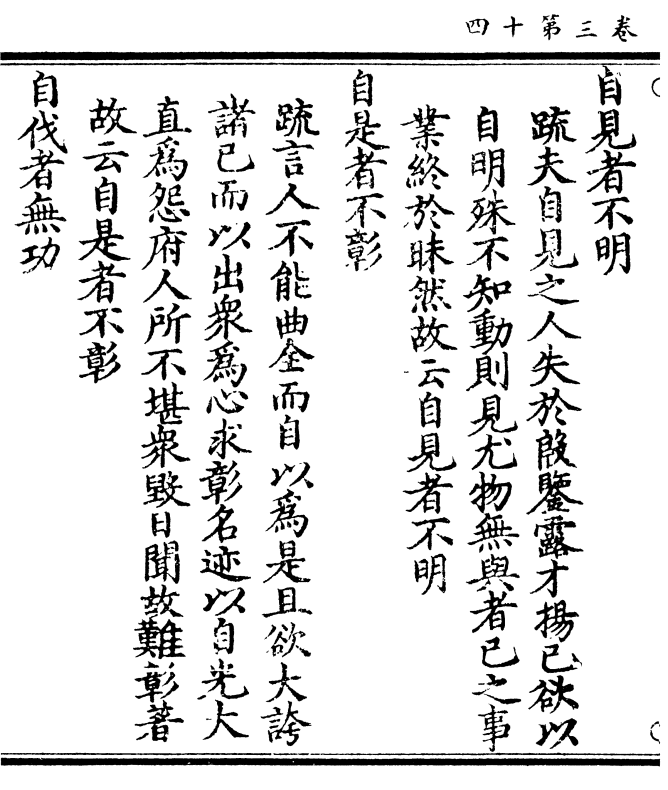 卷三第十四
自見者不明
疏夫自見之人失於殷鑒露才揚己欲以
自明殊不知動則見尤物無與者己之事
業終於昧然故云自見者不明
自是者不彰
疏言人不能曲全而自以爲是且欲大誇
諸己而以出衆爲心求彰名迹以自光大
直爲怨府人所不堪衆毀日聞故難彰著
故云自是者不彰
自伐者無功